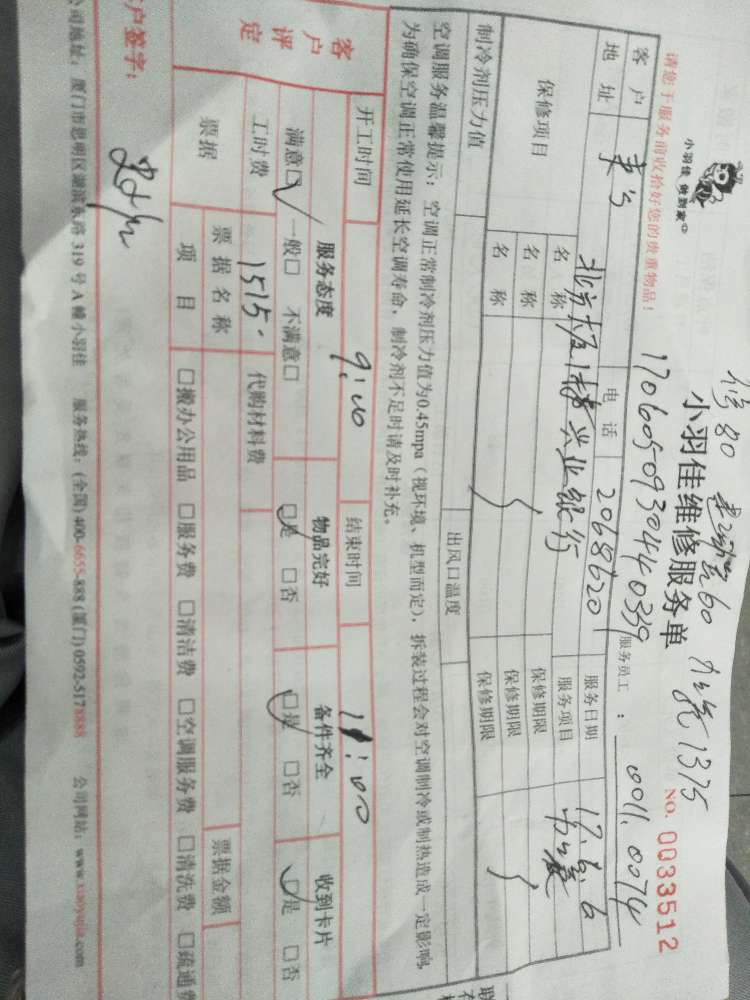 小羽佳 做到家
修80 60 1375
小羽佳维修服务单
NO. 0033512
170605093044 0339
请您于服务前收拾好您的贵重物品！
服务员工： 0011.0074
客户 电话 2068620 服务日期 17.6.6
地址 兴业银行 服务项目
保修项目 名称 保修期限
名称 保修期限
名称 保修期限
制冷剂压力值 出风口温度
空调服务温馨提示：空调正常制冷剂压力值为0.45mpa（视环境、机型而定），拆装过程会对空调制冷或制热造成一定影响
为确保空调正常使用延长空调寿命，制冷剂不足时请及时补充。
开工时间 9:00 结束时间 11:00
客户评定 服务态度 物品完好 备件齐全 收到卡片
满意□ 一般□ 不满意□ □是 □否 □是 □否 □是 □否
工时费 1515. 代购材料费
票据 票据名称 票据金额
项目 □搬办公用品 □服务费 □清洁费 □空调服务费 □清洗费 □疏通费
户签字：
公司地址：厦门市思明区湖滨东路319号A幢小羽佳 服务热线：(全国) 400-6655-888 (厦门) 0592-5178888 公司网站：www.xiaoyujia.com